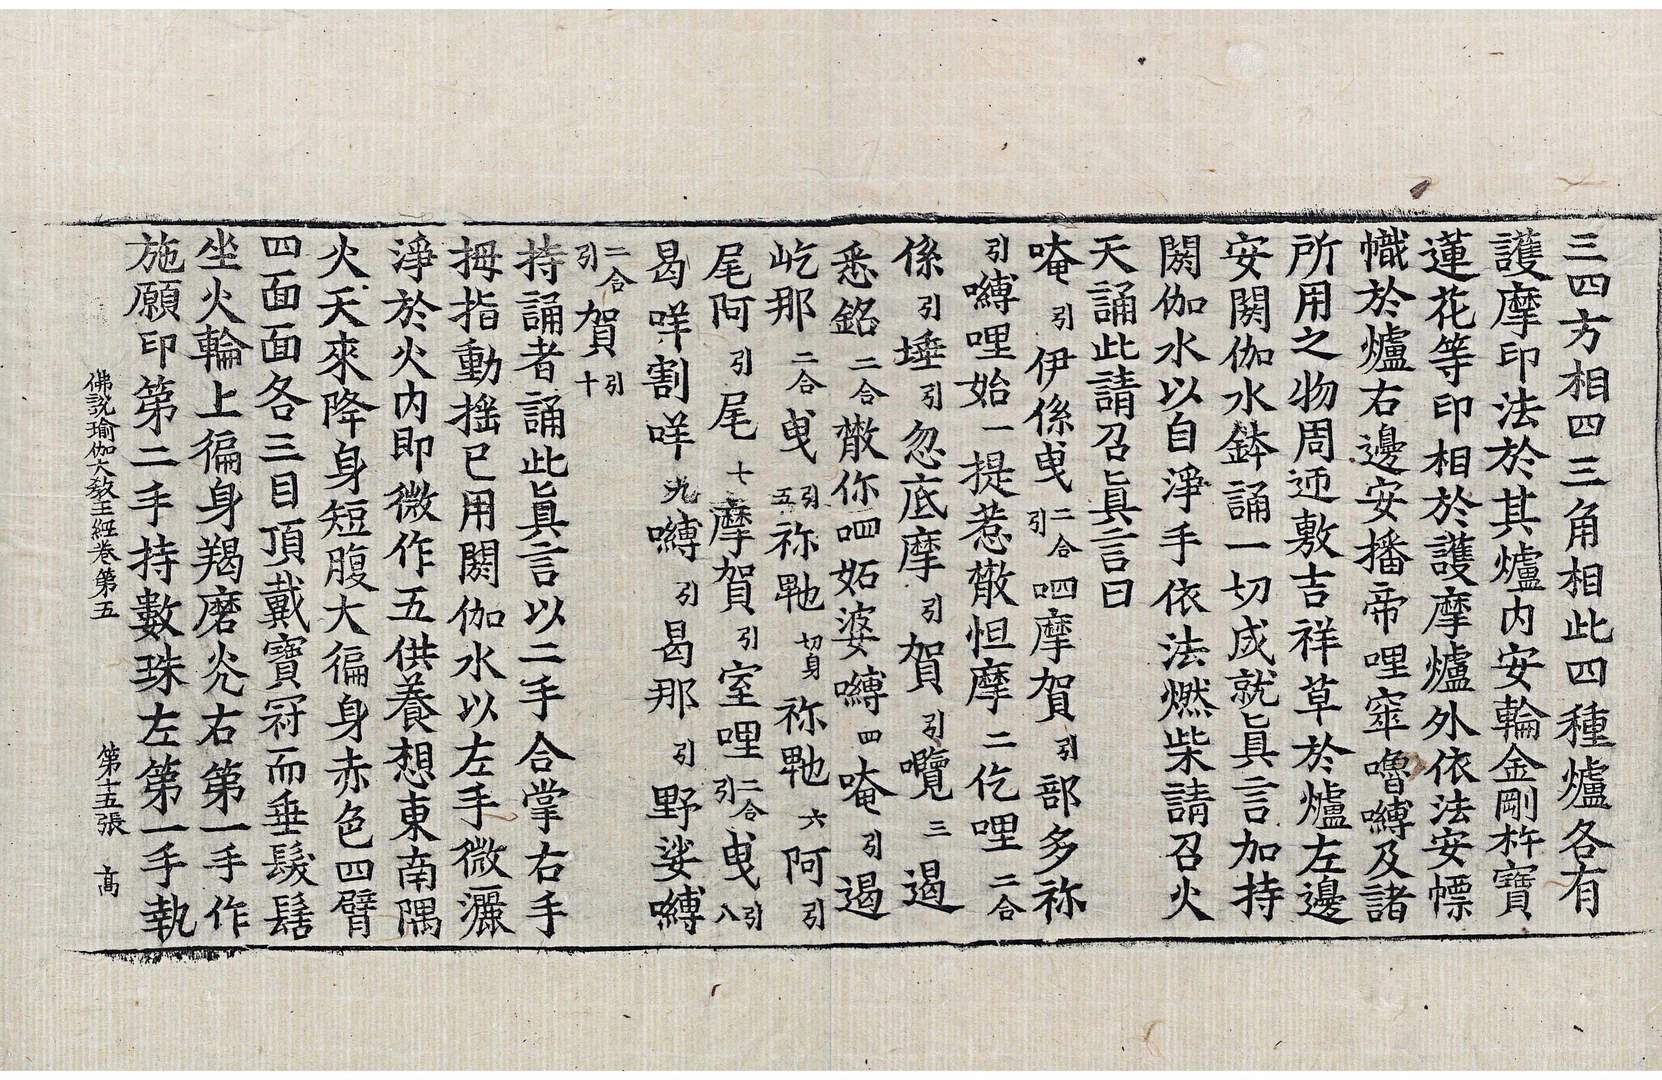 三四方相四三角相此四種爐各有
護摩印法於其爐内安輪金剛杵寶
蓮花等印相於護摩爐外依法安幖
幟於爐右邊安播帝哩窣嚕嚩及諸
所用之物周迊敷吉祥草於爐左邊
安閼伽水鉢誦一切成就眞言加持
閼伽水以自淨手依法燃柴請召火
天誦此請召眞言曰
唵引伊係曵二合引呬摩賀引部多祢
引嚩哩始一提惹㦃怛摩二仡哩二合
係引埵引忽底摩引賀引囕三遏
悉銘二合㦃你呬妬婆嚩四唵引遏
屹那二合曵引五祢毗切身祢毗六阿引
尾阿引尾七摩賀引室哩二合引曵引八
曷咩割咩九嚩引曷那引野娑嚩
二合引賀引十
持誦者誦此眞言以二手合掌右手
拇指動搖已用閼伽水以左手微灑
淨於火内即微作五供養想東南隅
火天來降身短腹大徧身赤色四臂
四面面各三目頂戴寶冠而垂髮髻
坐火輪上徧身羯磨光右第一手作
施願印第二手持數珠左第一手執
佛說瑜伽大教王經卷第五　第十五張　高